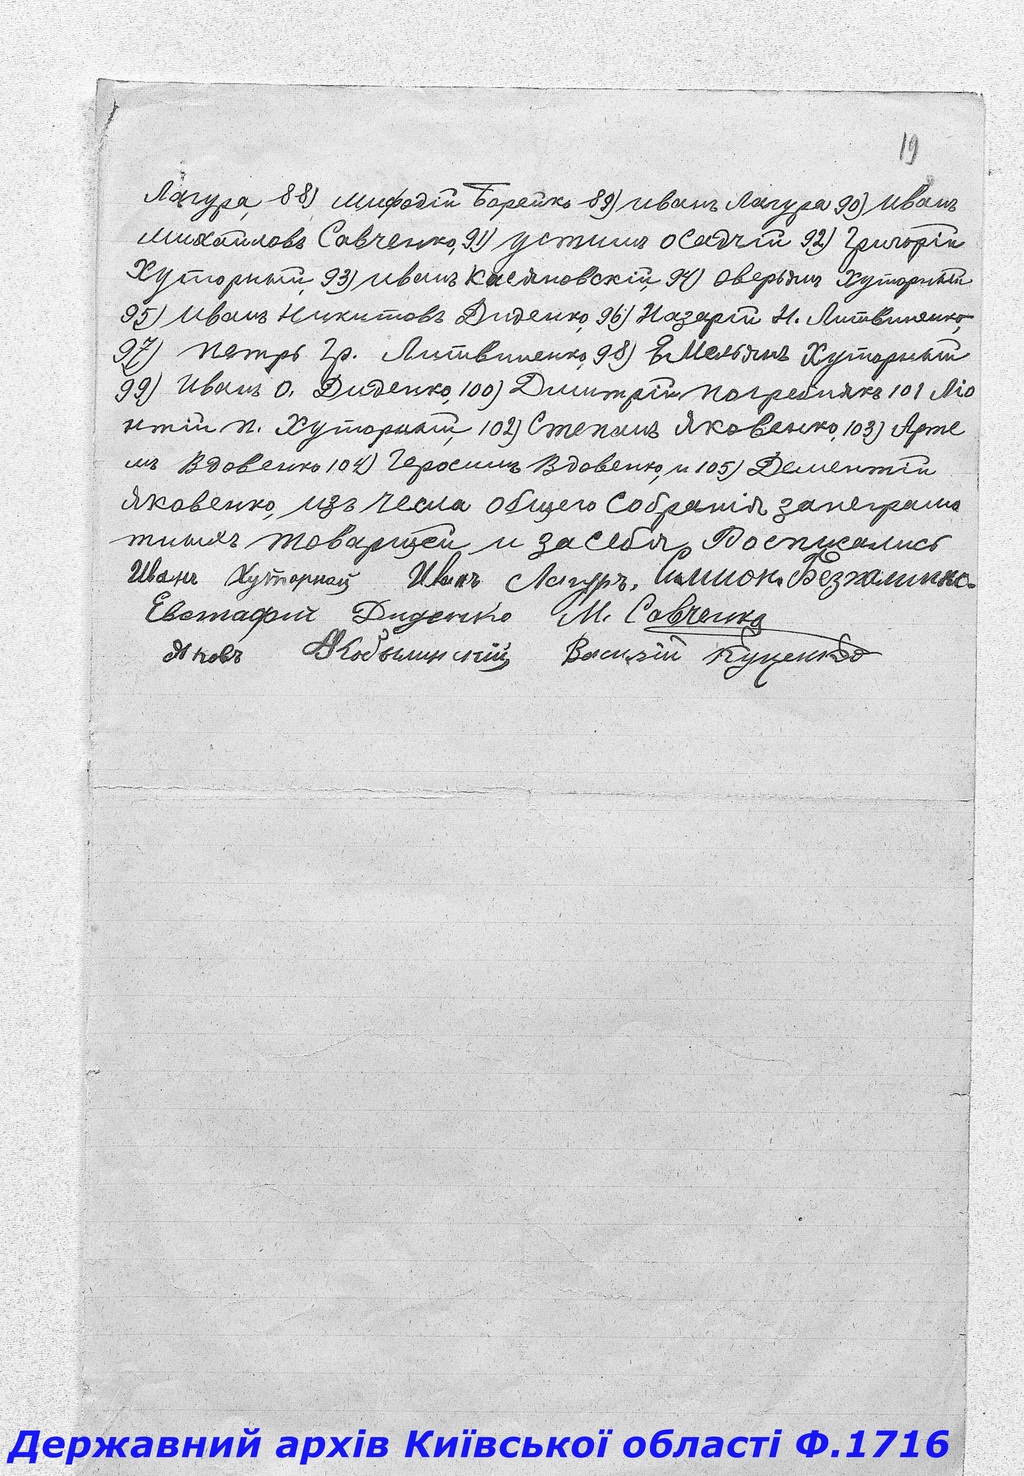 19
Лагура, 88) Мифодій Борейко 89) иванъ Лагура 90) Иванъ
Михайловъ Савченко, 91) устинъ осадчій 92) Григорій
Хуторный, 93) иванъ Касяновскій, 94) оверьянъ Хуторный
95) Иванъ Никитовъ Диденко, 96) Назарій Н. Литвиненко,
97) Петръ Гр. Литвиненко, 98) Емельянъ Хуторный
99) Иванъ О. Диденко, 100) Дмитрій Погребнякъ 101 Ліо
нтій П. Хуторный, 102) Степанъ Яковенко, 103) Арте
мъ Вдовенко 104) Геросимъ Вдовенко, и 105) Дементій
Яковенко, изъ чесла общего собранія, занеграмо
тныхъ товарищей и засебя, Росписались
Иванъ Хуторной Иванъ Лагуръ, Симионъ Безкалинко.
Евстафий Диденко М. Савченко
Яковъ Кобылинскій, Василій Куценко
Державний архів Київської області Ф.1716